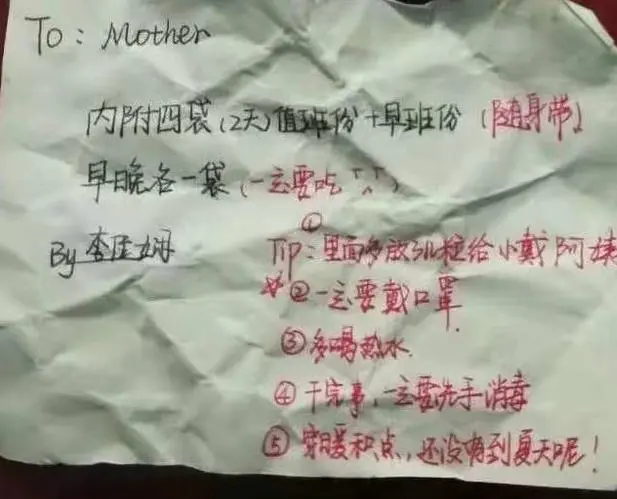 To: Mother
内附四袋(2天)值班份+早班份(随身带)
早晚各一袋(一定要吃
By 李
① Tip:里面多放 粒给小戴阿姨
②一定要戴口罩.
③多喝热水.
④干完事,一定要洗手消毒
⑤穿暖和点,还没有到夏天呢!